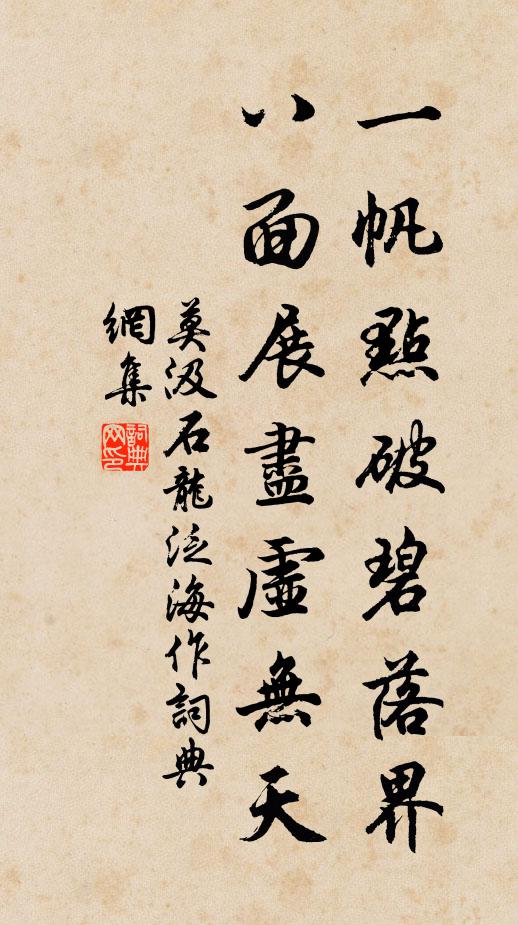 一帆點破碧落界
八面展盡虛無天
莫汲石龍泛海作詞典
網集
詞典網印